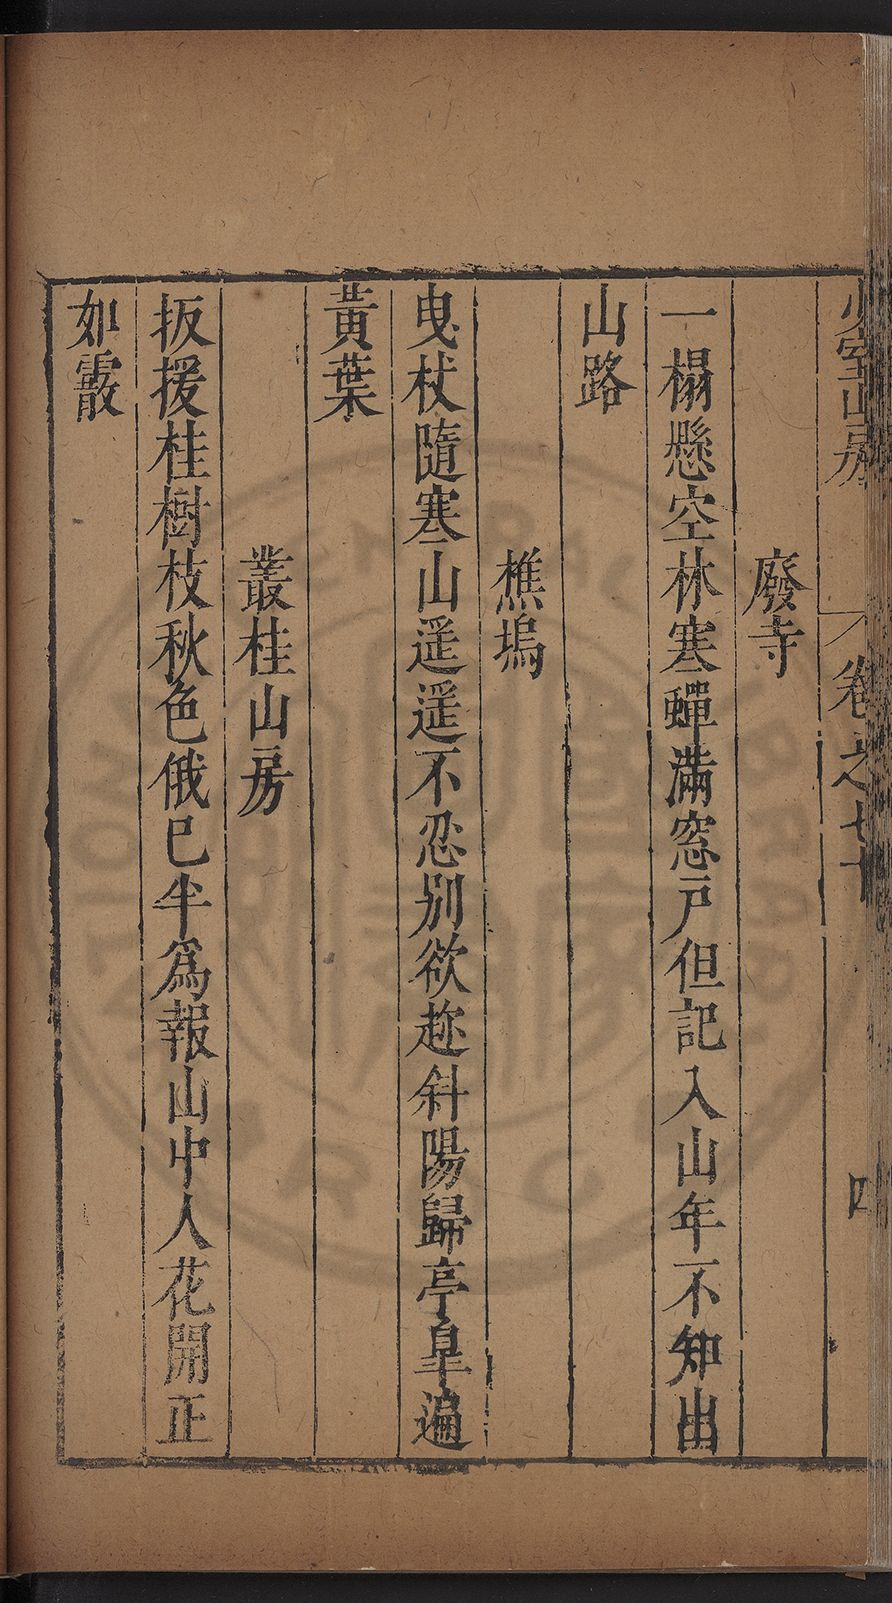 少室山房　卷之七十　四
廢寺
一榻懸空林寒蟬滿窓戸但記入山年不知出
山路
樵塢
曳杖隨寒山遥遥不忍别欲趂斜陽歸亭臯遍
黃葉
叢桂山房
扳援桂樹枝秋色俄已半爲報山中人花開正
如霰